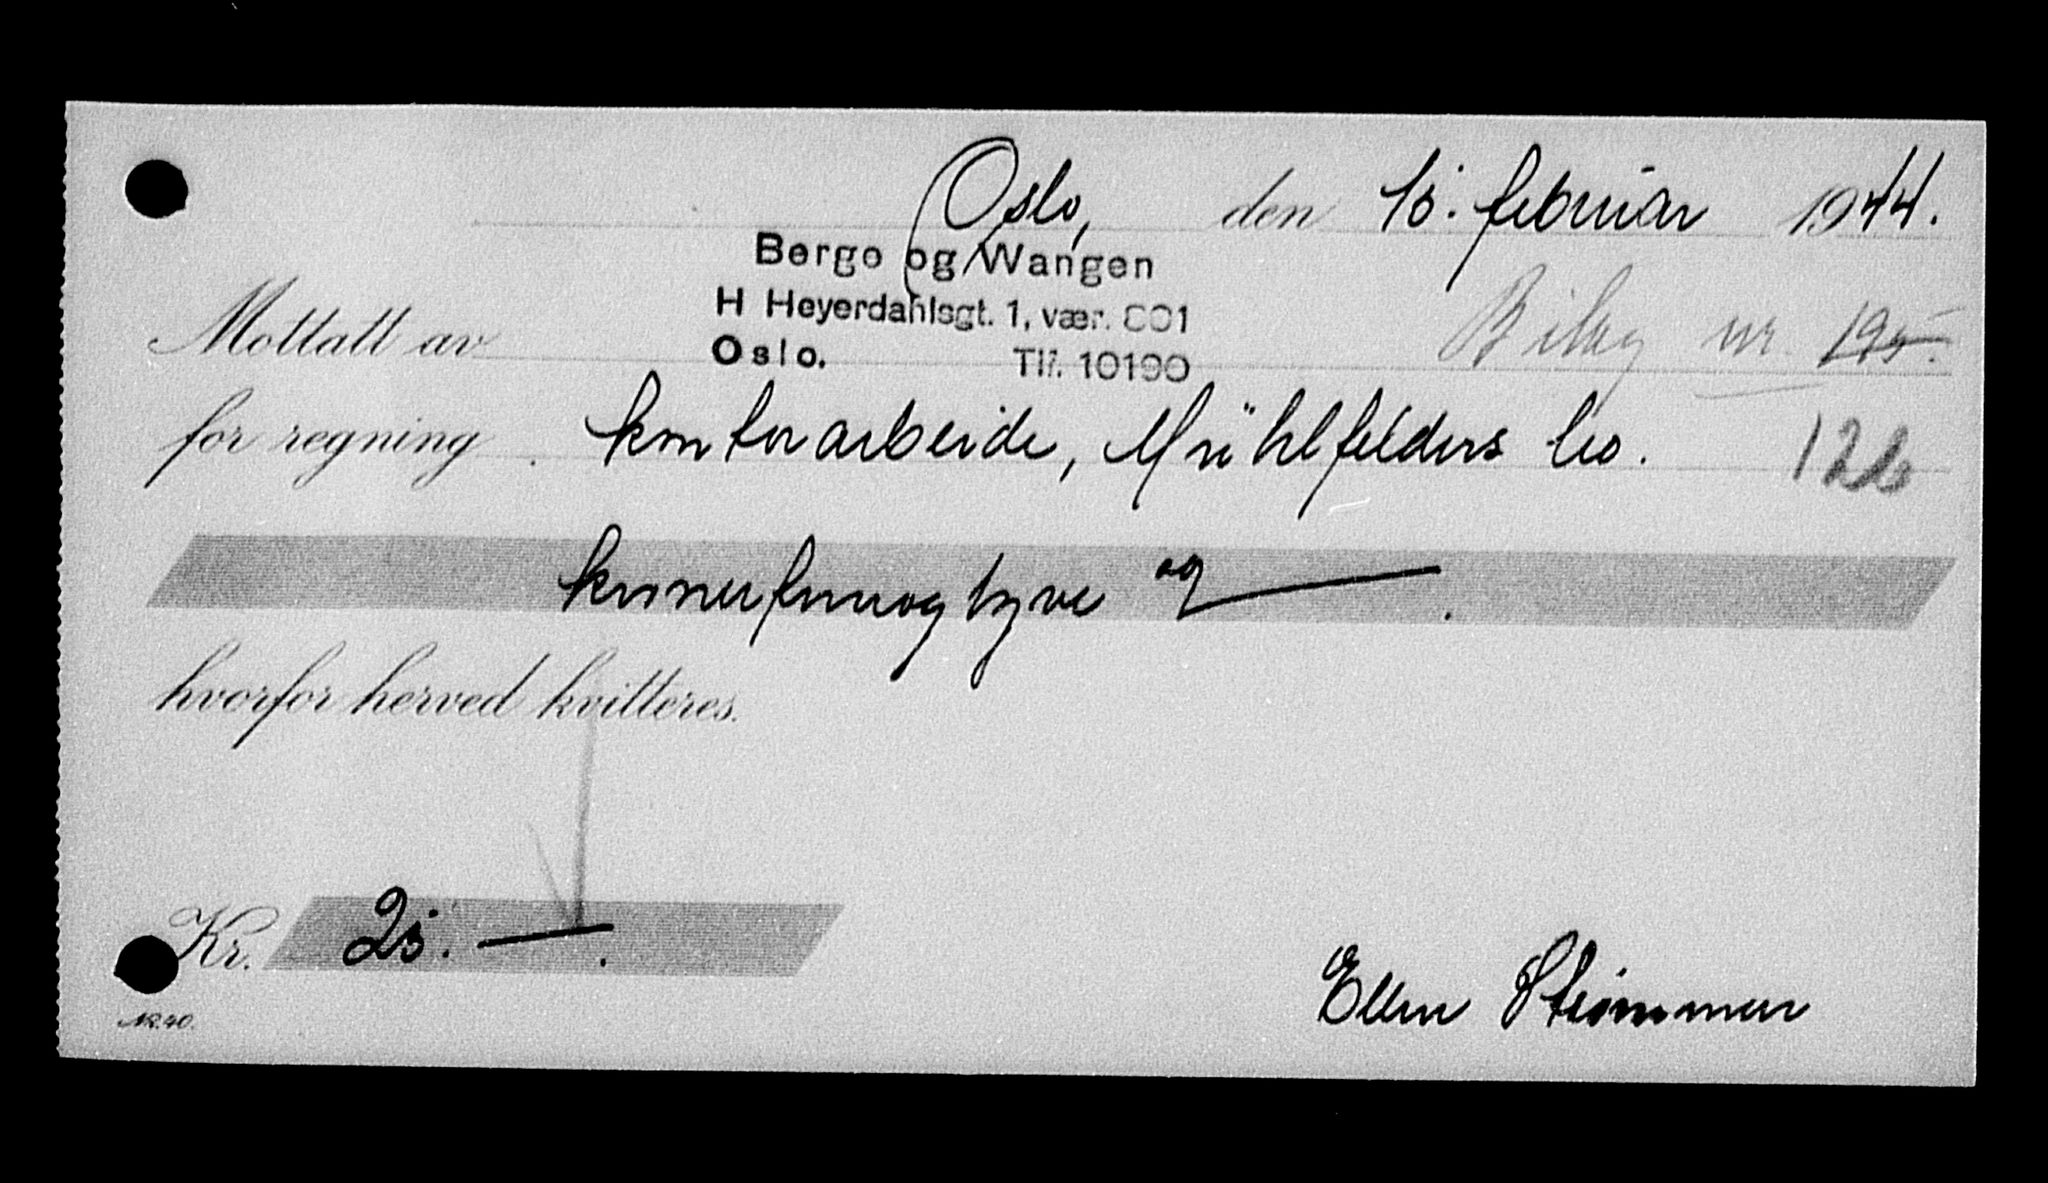 Oslo, den 15. februar 1944.
Bergo og Wangen
H Heyerdahlsgt. 1, vær. 801
Oslo. Tlf. 10190
Mottatt av Bilag nr. 195.
for regning kontorarbeide, Mühlfelders bo. 126
kroner femogtyve og —.
hvorfor herved kvitteres.
Kr. 25. —.
Ellen Strømmen
NR. 40.